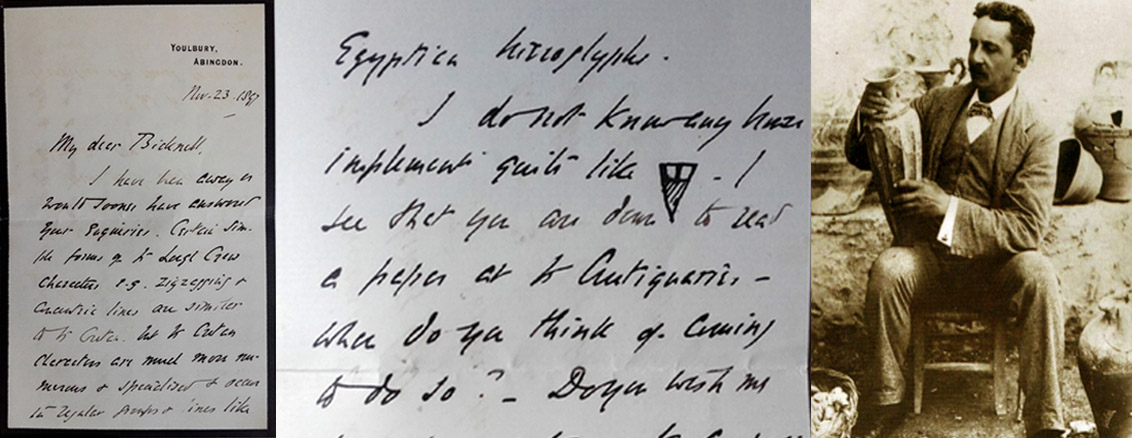 YOULBURY,
ABINGDON.
Nov. 23. 1897
My dear Bicknell,
I have been away or
would sooner have answered
your Enquiries. Certain sim-
ple forms of the Lough Crew
characters e.g. zigzagging &
concentric lines are similar
to the Cretan. but the Cretan
characters are much more nu-
merous & specialized & occur
in regular groups & lines like
Egyptian hieroglyphs.
I do not know any
implement quite like - I
see that you are down to read
a paper at the Antiquaries -
when do you think of coming
to do so? - Do you wish me